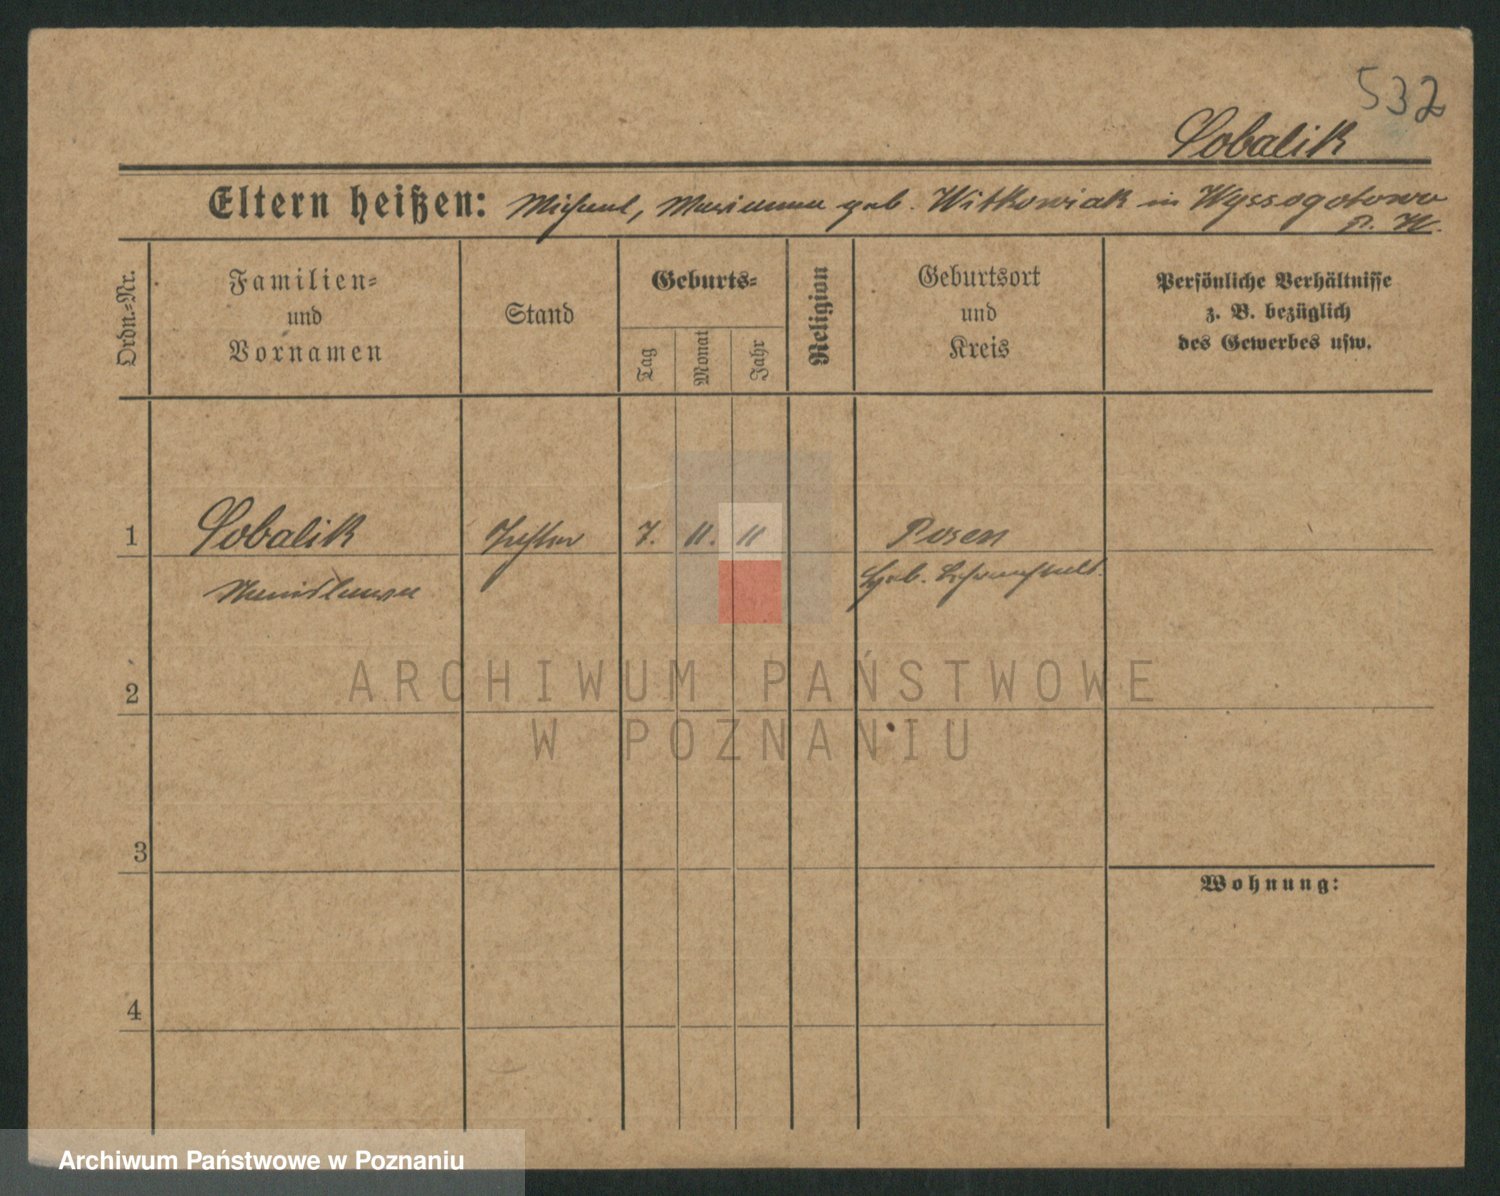 532
Sobalik
Eltern heißen: Michael, Marianna geb. Witkowiak in Wyssogotowo
P. W.
Ordn.=Nr.
Familien=
und
Vornamen
Stand
Geburts=
Tag
Monat
Jahr
Religion
Geburtsort
und
Kreis
Persönliche Verhältnisse
z. B. bezüglich
des Gewerbes usw.
1
Sobalik
Tochter
7. 11. 11
Posen
Geb.
2
3
4
Wohnung:
ARCHIWUM PAŃSTWOWE
W POZNANIU
Archiwum Państwowe w Poznaniu